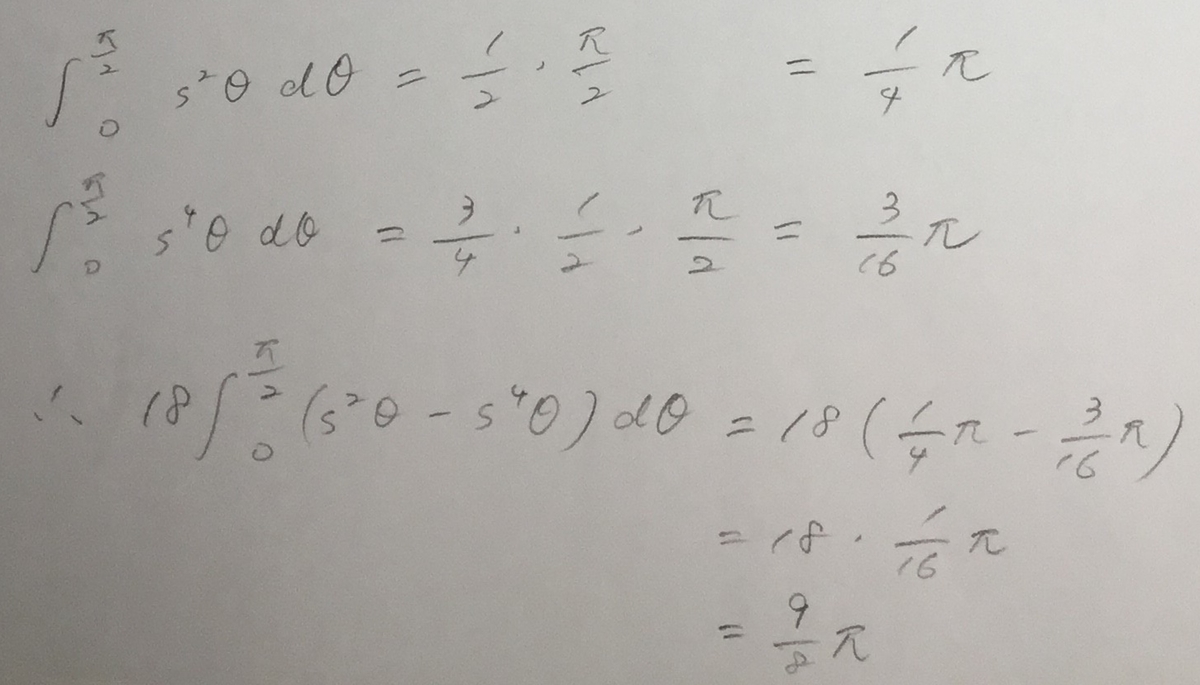 ∫₀^{π/2} s²θ dθ = 1/2 · π/2 = 1/4 π
∫₀^{π/2} s⁴θ dθ = 3/4 · 1/2 · π/2 = 3/16 π
∴ 18∫₀^{π/2} (s²θ − s⁴θ) dθ = 18(1/4 π − 3/16 π)
= 18 · 1/16 π
= 9/8 π